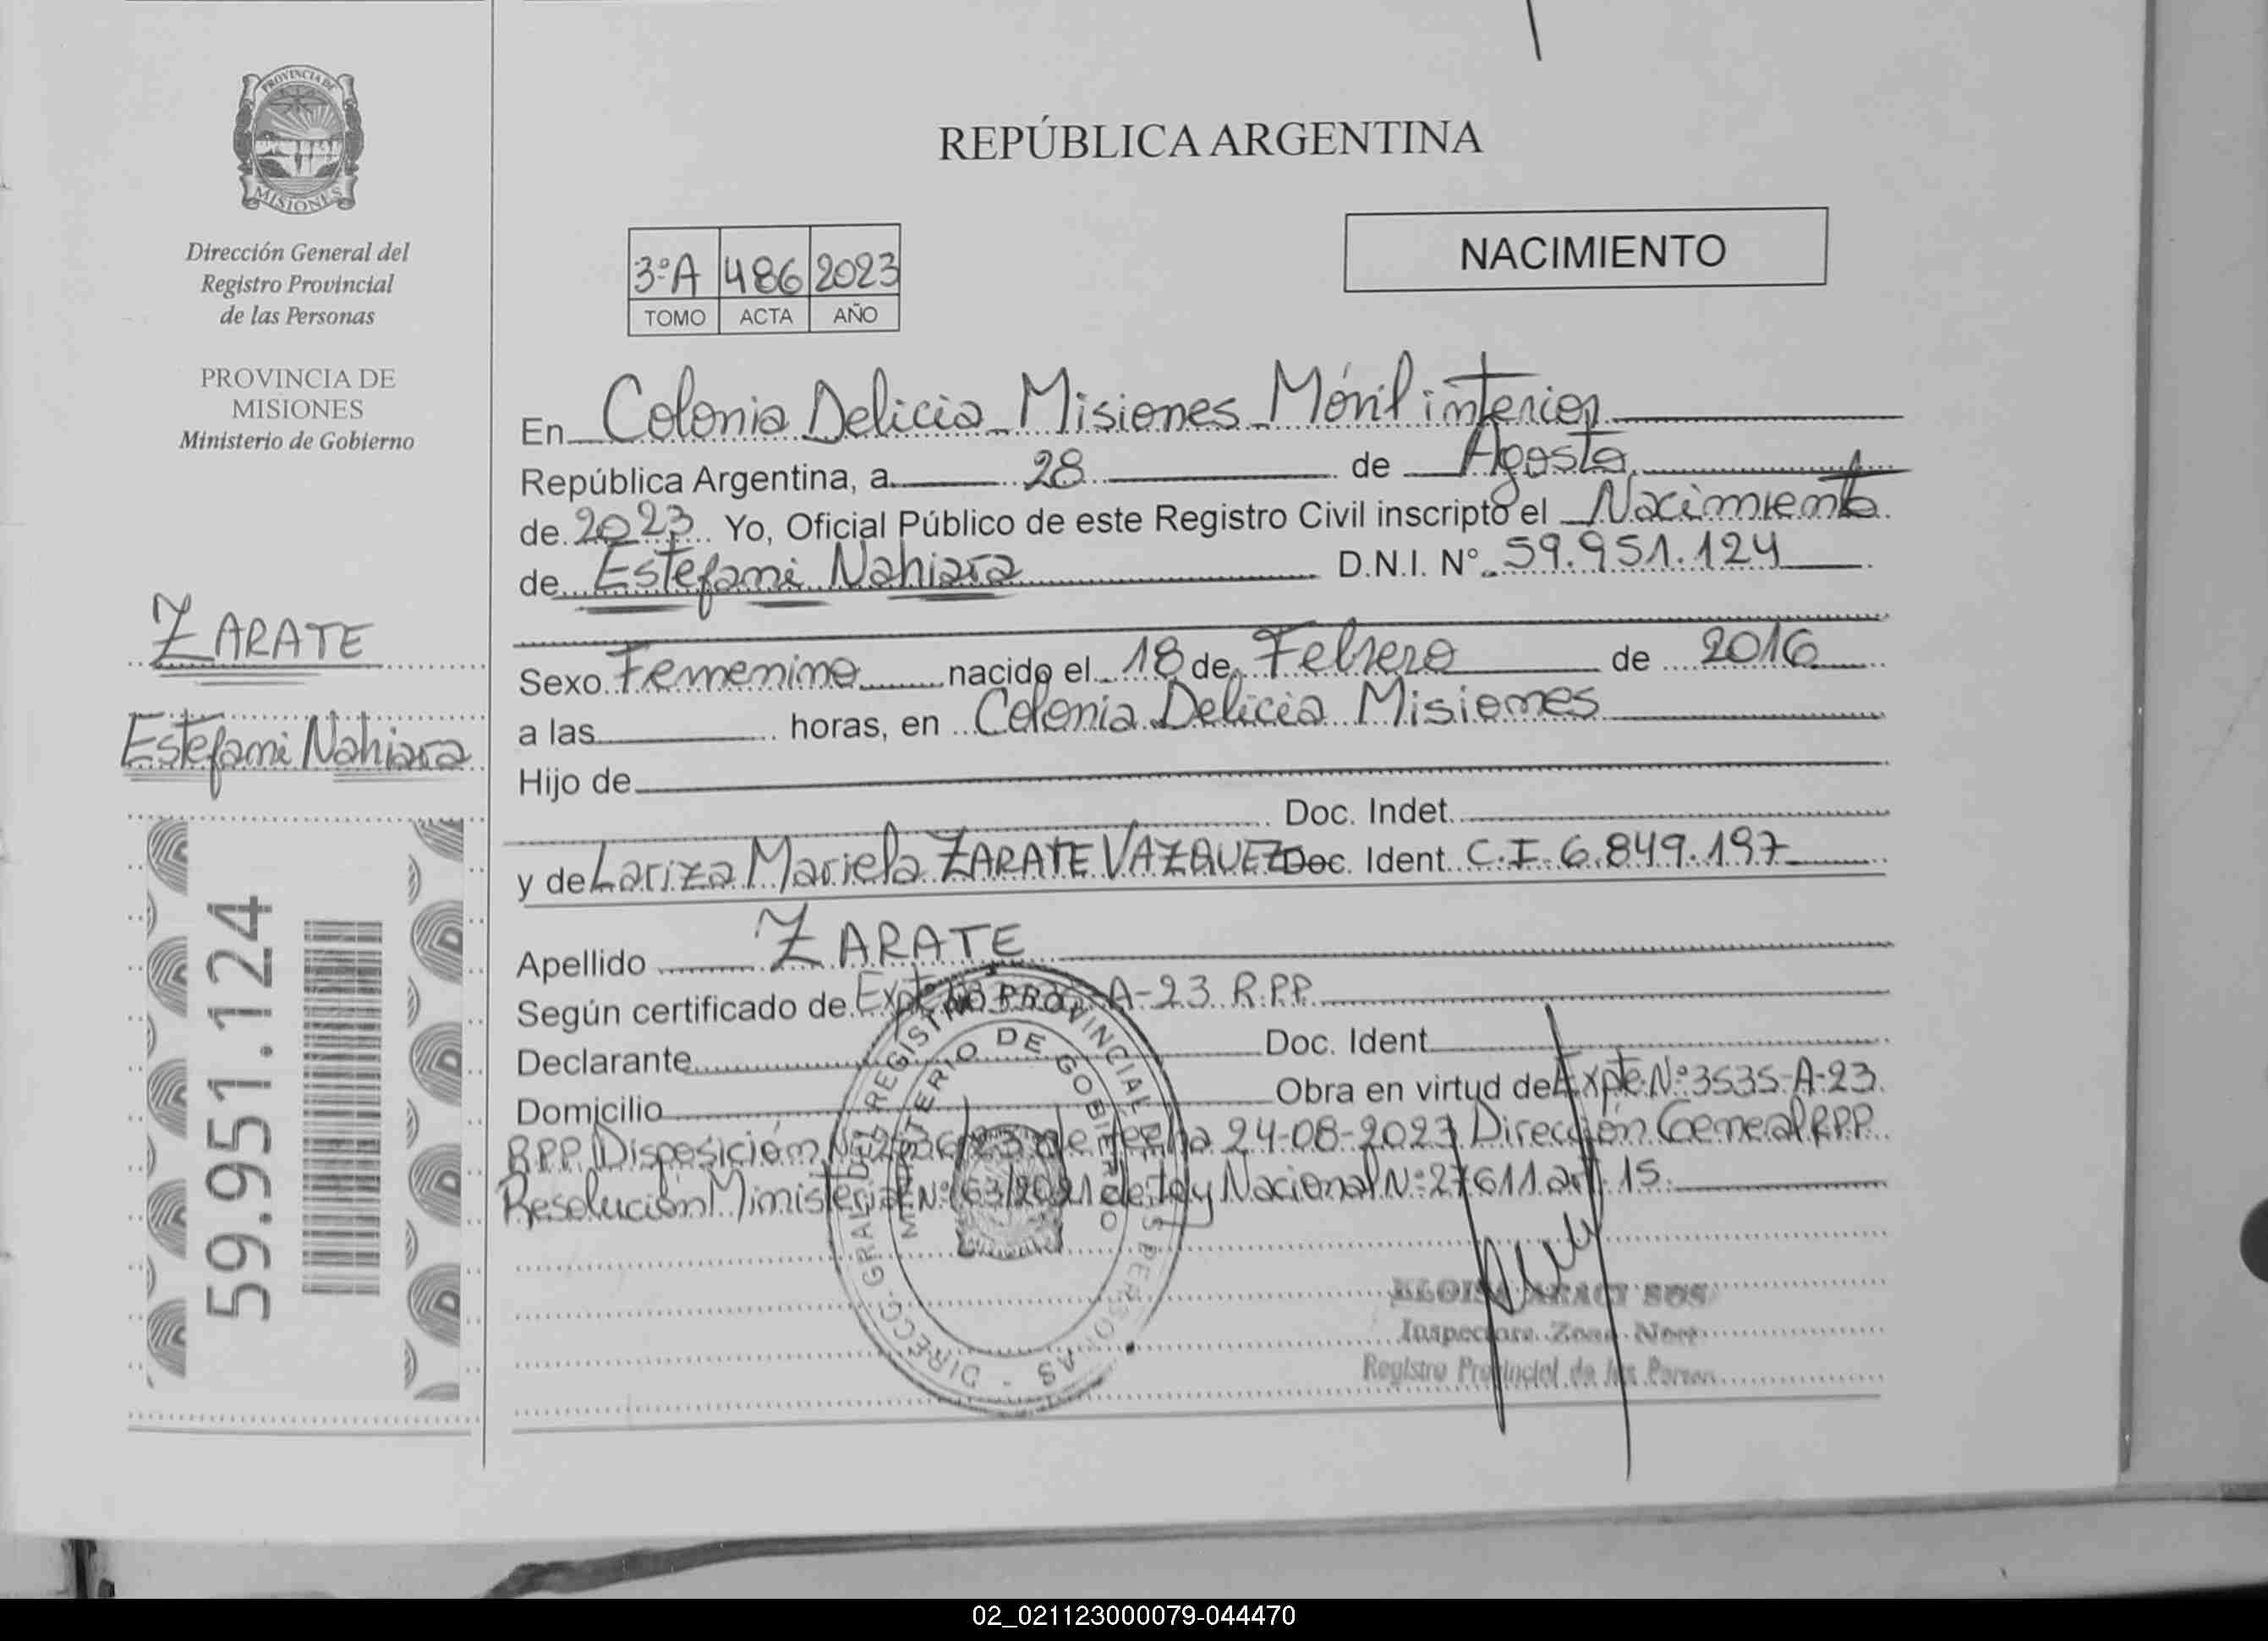 PROVINCIA DE
MISIONES
Dirección General del
Registro Provincial
de las Personas
PROVINCIA DE
MISIONES
Ministerio de Gobierno
ZARATE
Estefani Nahiara
59.951.124
REPÚBLICA ARGENTINA
3ºA 486 2023
TOMO ACTA AÑO
NACIMIENTO
En Colonia Delicia Misiones Móvil interior
República Argentina, a 28 de Agosto
de 2023 Yo, Oficial Público de este Registro Civil inscripto el Nacimiento
de Estefani Nahiara D.N.I. Nº 59.951.124
Sexo Femenino nacido el 18 de Febrero de 2016
a las horas, en Colonia Delicia Misiones
Hijo de
Doc. Indet.
y de Lariza Mariela ZARATE VAZQUEZ Doc. Ident. C.I. 6.849.197
Apellido ZARATE
Según certificado de Expte A-23 R.P.P.
Declarante Doc. Ident.
Domicilio Obra en virtud de Expte Nº 3535-A-23.
RPP Disposición de fecha 24-08-2023 Dirección General RPP
Resolución Ministerial Nº 63/2021 de Ley Nacional Nº 27611 art. 15.
DIRECC. GRAL. DEL REGISTRO PROVINCIAL DE LAS PERSONAS -
MINISTERIO DE GOBIERNO
Inspectora Zona
Registro Provincial de las Person
02_021123000079-044470